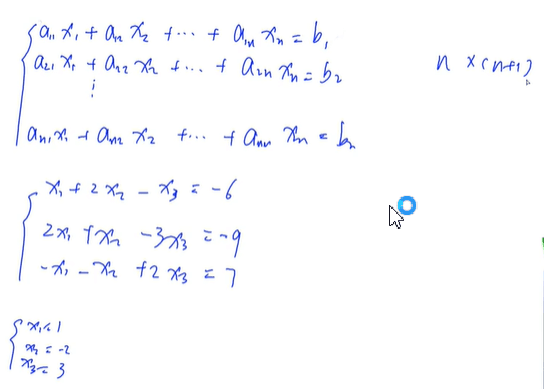 a₁₁ x₁ + a₁₂ x₂ + ⋯ + a₁ₙ xₙ = b₁
a₂₁ x₁ + a₂₂ x₂ + ⋯ + a₂ₙ xₙ = b₂
n × (n+1)
⋮
aₙ₁ x₁ + aₙ₂ x₂ + ⋯ + aₙₙ xₙ = bₙ
x₁ + 2x₂ - x₃ = -6
2x₁ + x₂ - 3x₃ = -9
-x₁ - x₂ + 2x₃ = 7
x₁ = 1
x₂ = -2
x₃ = 3